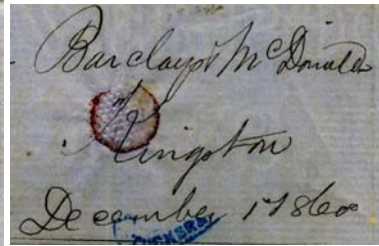 Barclays & McDonald
Kingston
December 1 1860